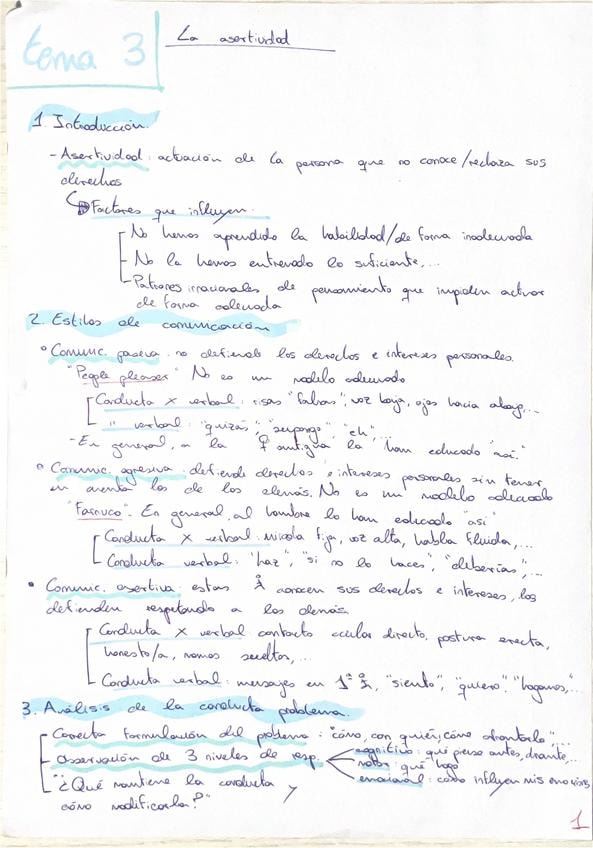 tema 3
La asertividad
1. Introducción.
- Asertividad: actuación de la persona que no conoce/rechaza sus
derechos
Factores que influyen:
No hemos aprendido la habilidad/de forma inadecuada
- No la hemos entrenado lo suficiente,...
- Patrones irracionales de pensamiento que impiden activar
de forma adecuada
2. Estilos de comunicación
Comunic. pasiva: no defiende los derechos e intereses personales.
"People pleaser" No es un modelo adecuado
Conducta x verbal: risas "falsas", voz baja, ojos hacia abajo,...
" verbal: "quizás", "supongo", "eh",...
- En general, a la ♀ antigua la han educado "así."
Comunic. agresiva: defiende derechos e intereses personales sin tener
en cuenta los de los demás. No es un modelo adecuado
"Farruco". En general, al hombre lo han educado "así"
Conducta x verbal: mirada fija, voz alta, habla fluida,...
Conducta verbal: "haz", "si no lo haces", "deberías",...
Comunic. asertiva: estas conocen sus derechos e intereses, los
defienden respetando a los demás.
Conducta x verbal contacto ocular directo, postura erecta,
honesto/a, manos sueltas,...
Conducta verbal: mensajes en 1ª, "siento", "quiero" "hagamos",...
3. Análisis de la conducta problema.
Correcta formulación del problema: "cómo, con quién, cómo afrontarlo"...
- Observación de 3 niveles de resp. cognitivo: qué pienso antes, durante,...
motor: qué hago
emocional: cómo influyen mis emociones
"¿Qué mantiene la conducta y
cómo modificarla?"
1